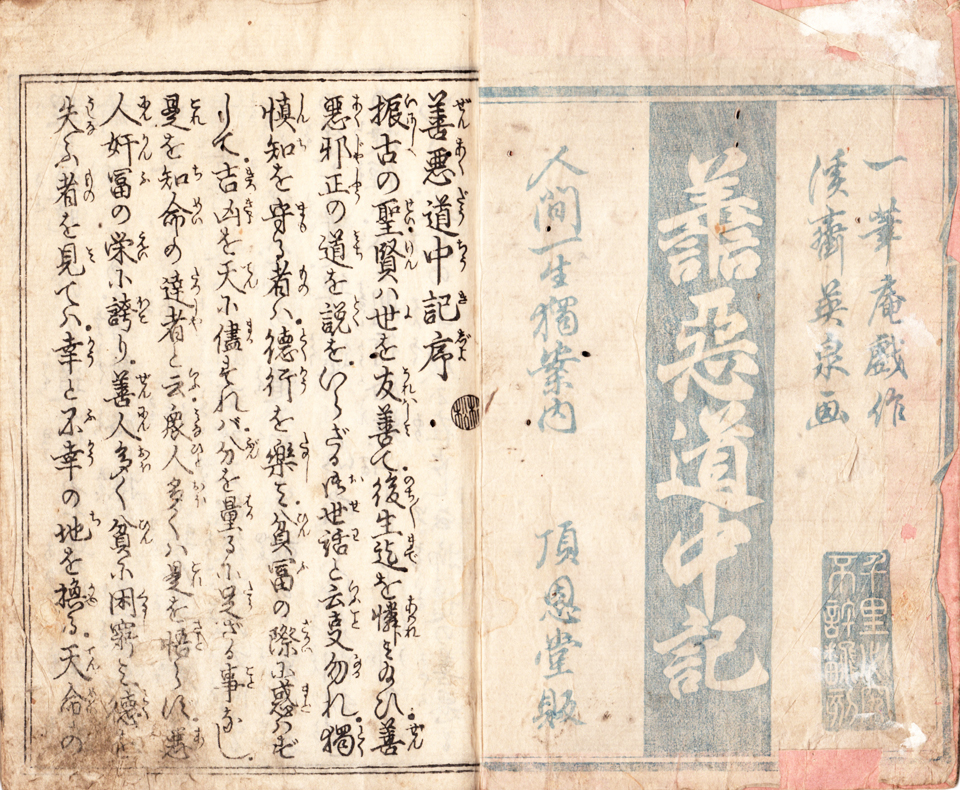 一筆庵戯作
溪齋英泉画
善惡道中記
人間一生獨案内
頂恩堂販
千里必究
不許翻刻
善悪道中記序
振古の聖賢ハ世を友善て後生迄を憐ミ玉ひ善
悪邪正の道を説を。いらざる御世話と云叓勿れ。獨
慎知を守る者ハ。徳行を樂ミ。貧冨の際に惑ハず
して。吉凶を天に儘すれバ。分を量るに足ざる事なし
是を知命の達者と云。衆人多くハ是を悟らず。悪
人奸冨の栄に誇り。善人多く貧に困窮ミ。徳を
失ふ者を見てハ。幸と不幸の地を換る。天命の